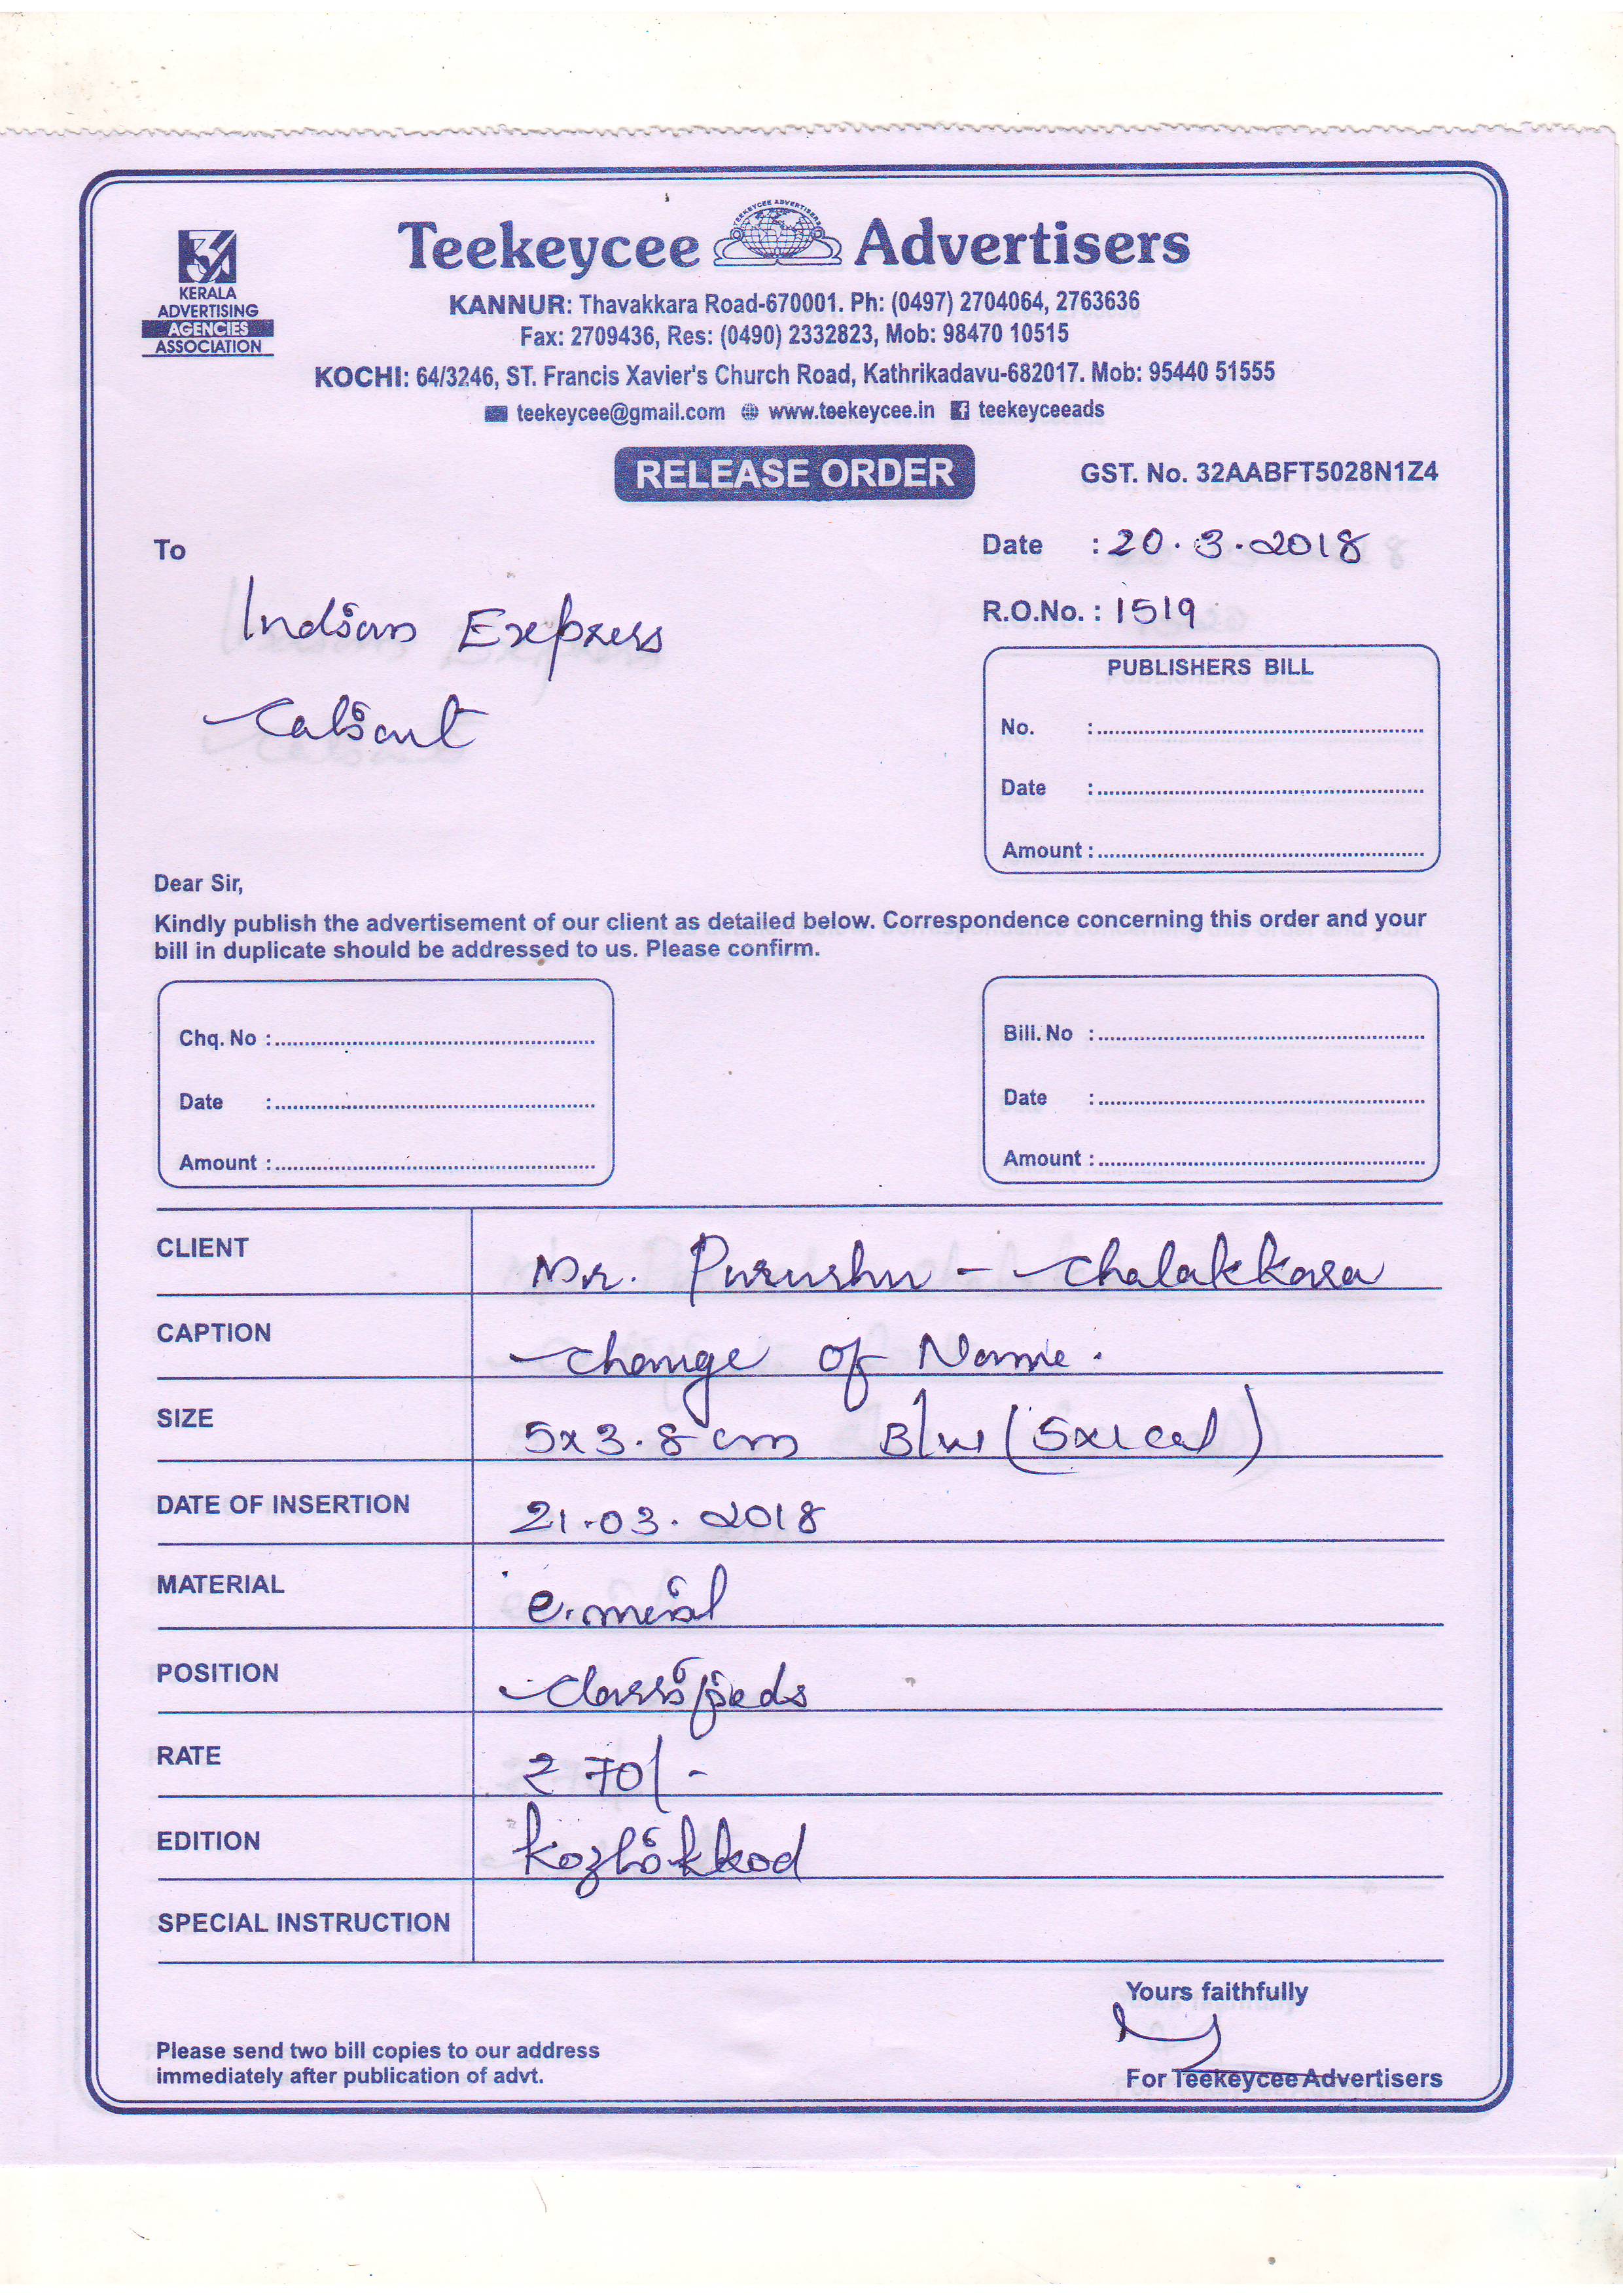 Teekeycee Advertisers
TEEKEYCEE ADVERTISERS
KERALA
ADVERTISING
AGENCIES
ASSOCIATION
KANNUR: Thavakkara Road-670001. Ph: (0497) 2704064, 2763636
Fax: 2709436, Res: (0490) 2332823, Mob: 98470 10515
KOCHI: 64/3246, ST. Francis Xavier's Church Road, Kathrikadavu-682017. Mob: 95440 51555
teekeycee@gmail.com www.teekeycee.in teekeyceeads
RELEASE ORDER GST. No. 32AABFT5028N1Z4
To Date : 20.3.2018
Indian Express R.O.No. : 1519
Calicut
PUBLISHERS BILL
No. :
Date :
Amount :
Dear Sir,
Kindly publish the advertisement of our client as detailed below. Correspondence concerning this order and your
bill in duplicate should be addressed to us. Please confirm.
Chq. No : Bill. No :
Date : Date :
Amount : Amount :
CLIENT Mr. Purushu - Chalakkara
CAPTION Change of Name.
SIZE 5x3.8 cm B/w (5x1 col)
DATE OF INSERTION 21.03.2018
MATERIAL e.mail
POSITION Classifieds
RATE ₹ 70/-
EDITION Kozhikkod
SPECIAL INSTRUCTION
Yours faithfully
Please send two bill copies to our address
immediately after publication of advt. For Teekeycee Advertisers